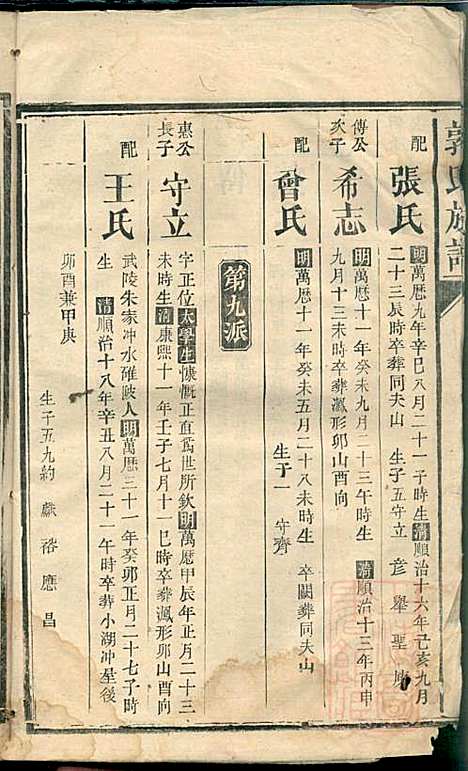 郭氏族譜
配 張氏 明萬曆九年辛巳八月二十一子時生清順治十六年己亥九月
二十三辰時卒葬同夫山 生子五守立 彥 舉 聖
傳公次子 希志 明萬曆十一年癸未九月二十三午時生 清順治十三年丙申
九月十三未時卒葬瀛形卯山酉向
配 曾氏 明萬曆十一年癸未五月二十八未時生 卒闕葬同夫山
生子一 守齊
第九派
惠公長子 守立 字正位太學生慷慨正直爲世所欽明萬曆甲辰年正月二十三
未時生清康熙十一年壬子七月十一巳時卒葬瀛形卯山酉向
配 王氏 武陵朱家冲水碓破人明萬曆三十一年癸卯正月二十七子時
生 清順治十八年辛丑八月二十一年時卒葬小湖冲屋後
卯酉兼甲庚
生子五九約 麒 裕 應 昌